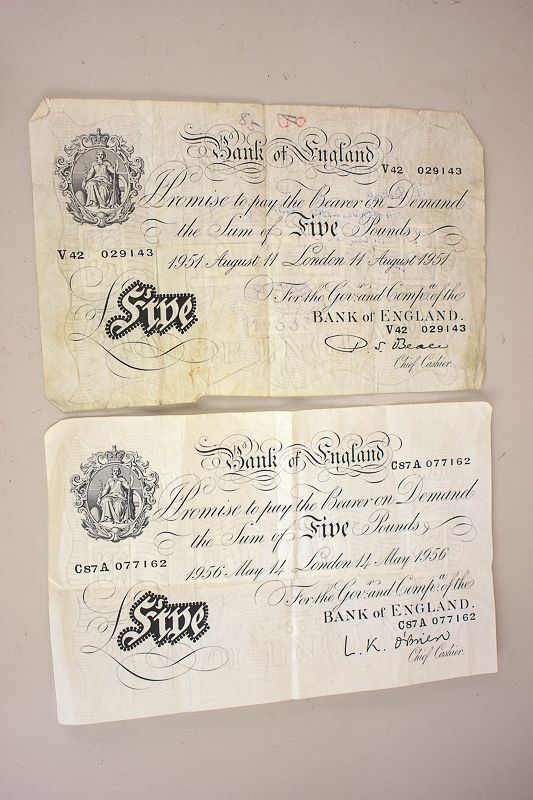 Bank of England
V42 029143
I Promise to pay the Bearer on Demand
the Sum of Five Pounds
V42 029143
1951 August 11 London 11 August 1951
For the Govr. and Compa. of the
BANK of ENGLAND.
Five
V42 029143
P. S. Beale
Chief Cashier.
Bank of England
C87A 077162
I Promise to pay the Bearer on Demand
the Sum of Five Pounds
C87A 077162
1956 May 14 London 14 May 1956
For the Govr. and Compa. of the
BANK of ENGLAND.
Five
C87A 077162
L. K. O'Brien
Chief Cashier.